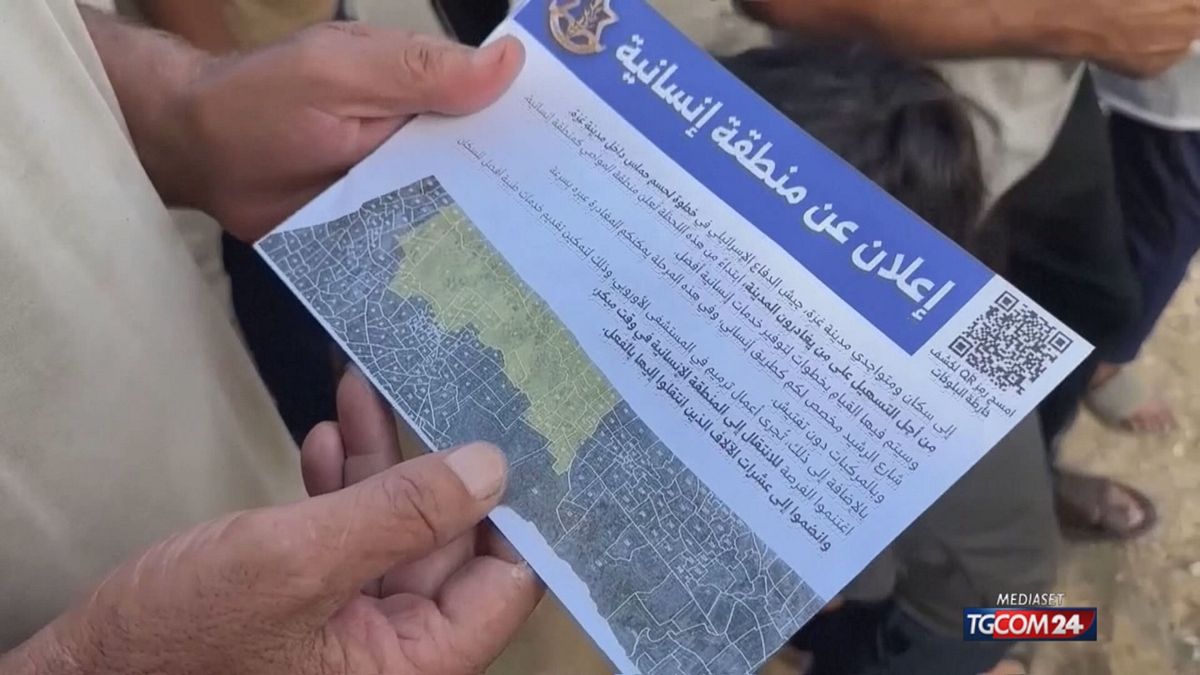 إعلان عن منطقة إنسانية
إلى سكان ومتواجدي مدينة غزة، جيش الدفاع الإسرائيلي في خطوة لحسم حماس داخل مدينة غزة.
من أجل التسهيل على من يغادرون المدينة، ابتداءً من هذه اللحظة تُعلن منطقة المواصي كمنطقة إنسانية
وسيتم فيها القيام بخطوات لتوفير خدمات إنسانية أفضل.
شارع الرشيد مخصص لكم كطريق إنساني، وفي هذه المرحلة يمكنكم المغادرة عبره بسرعة
وبالمركبات دون تفتيش.
بالإضافة إلى ذلك، تُجرى أعمال ترميم في المستشفى الأوروبي، وذلك لتمكين تقديم خدمات طبية أفضل للسكان
اغتنموا الفرصة للانتقال إلى المنطقة الإنسانية في وقت مبكر،
وانضموا إلى عشرات الآلاف الذين انتقلوا إليها بالفعل.
امسح رمز QR لكشف
خارطة البلوكات
MEDIASET
TGCOM24